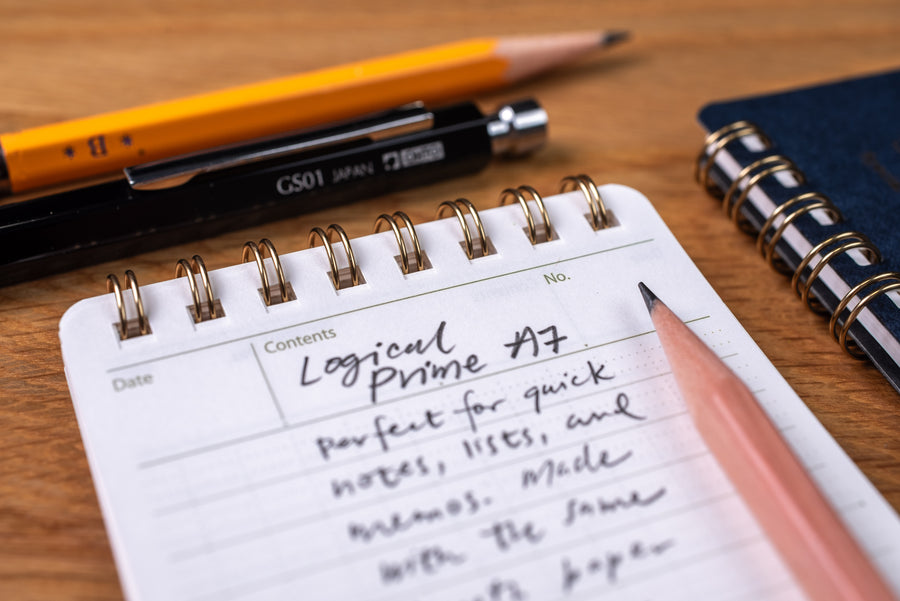 * B *
GS01 JAPAN
No.
Contents
Date
Logical
Prime A7
perfect for quick
notes, lists, and
memos. Made
with the same
paper